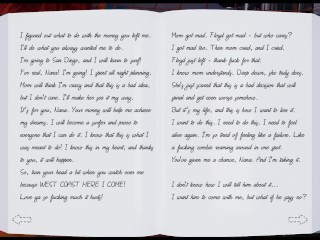 I figured out what to do with the money you left me.
I'll do what you always wanted me to do.
I'm going to San Diego, and I will learn to surf!
For real, Nana! I'm going! I spent all night planning.
Mom will think I'm crazy and that this is a bad idea,
but I don't care. I'll make her see it my way.
It's for you, Nana. Your money will help me achieve
my dreams. I will become a surfer and prove to
everyone that I can do it. I know that this is what I
was meant to do! I know this in my heart, and thanks
to you, it will happen.
So, turn your head a bit when you watch over me
because WEST COAST HERE I COME!
Love ya so fucking much it hurts!
Mom got mad. Floyd got mad - but who cares?
I got mad too. Then mom cried, and I cried.
Floyd just left - thank fuck for that.
I know mom understands. Deep down, she truly does.
She's just scared that this is a bad decision that will
spiral and get even worse somehow.
But it's my life, and this is how I want to live it.
I want to do this. I need to do this. I need to feel
alive again. I'm so tired of feeling like a failure. Like
a fucking zombie roaming around in one spot.
You've given me a chance, Nana. And I'm taking it.
I don't know how I will tell him about it...
I want him to come with me, but what if he says no?